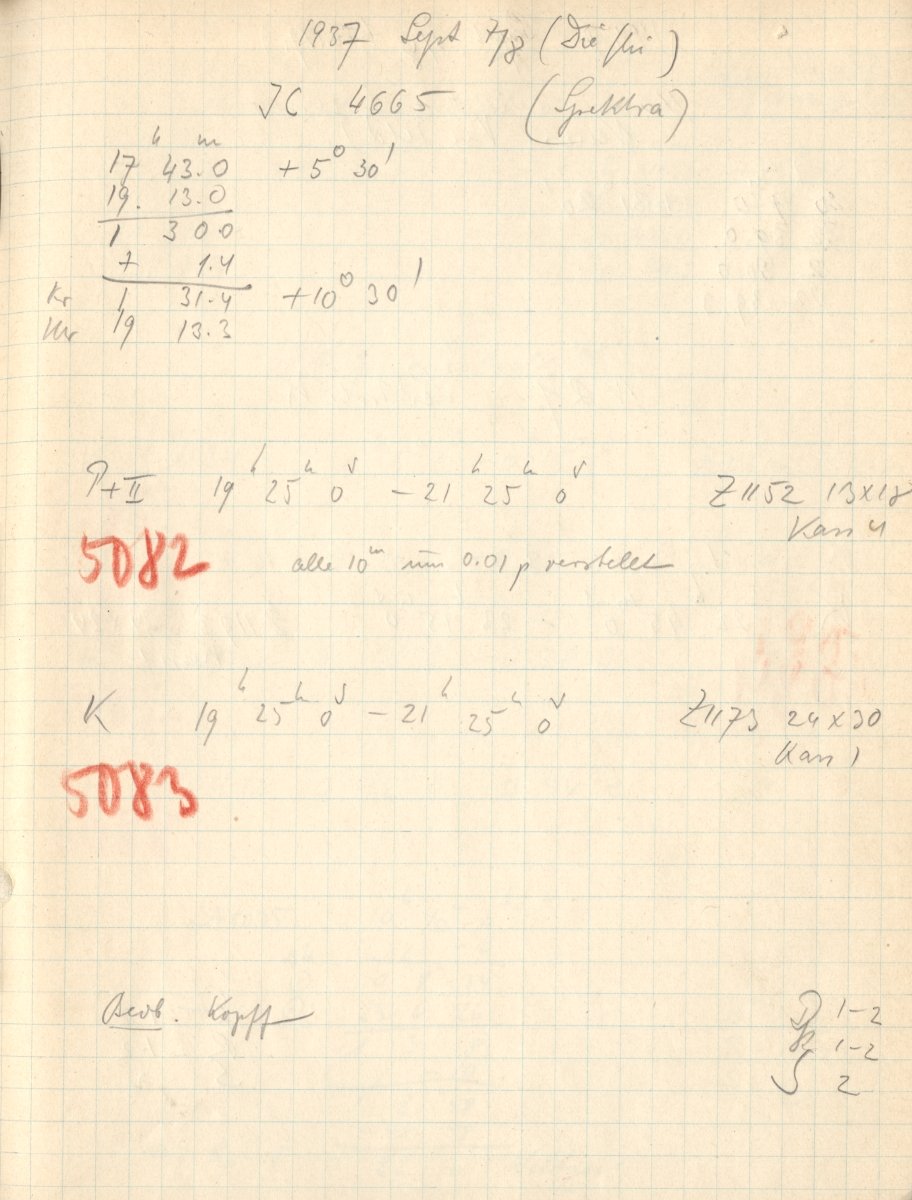 1937 Sept 7/8 (Die/Mi)
JC 4665 (Spektra)
17ʰ 43.0ᵐ +5° 30'
19. 13.0
1 30.0
+ 1.4
Kr 1 31.4 +10° 30'
Uhr 19 13.3
P+II 19ʰ 25ᵐ 0ˢ – 21ʰ 25ᵐ 0ˢ Z1152 13x18
Kass 4
5082 alle 10ᵐ um 0.01 p verstellt
K 19ʰ 25ᵐ 0ˢ – 21ʰ 25ᵐ 0ˢ Z1173 24x30
Kass 1
5083
Beob. Kopff D 1–2
R 1–2
S 2